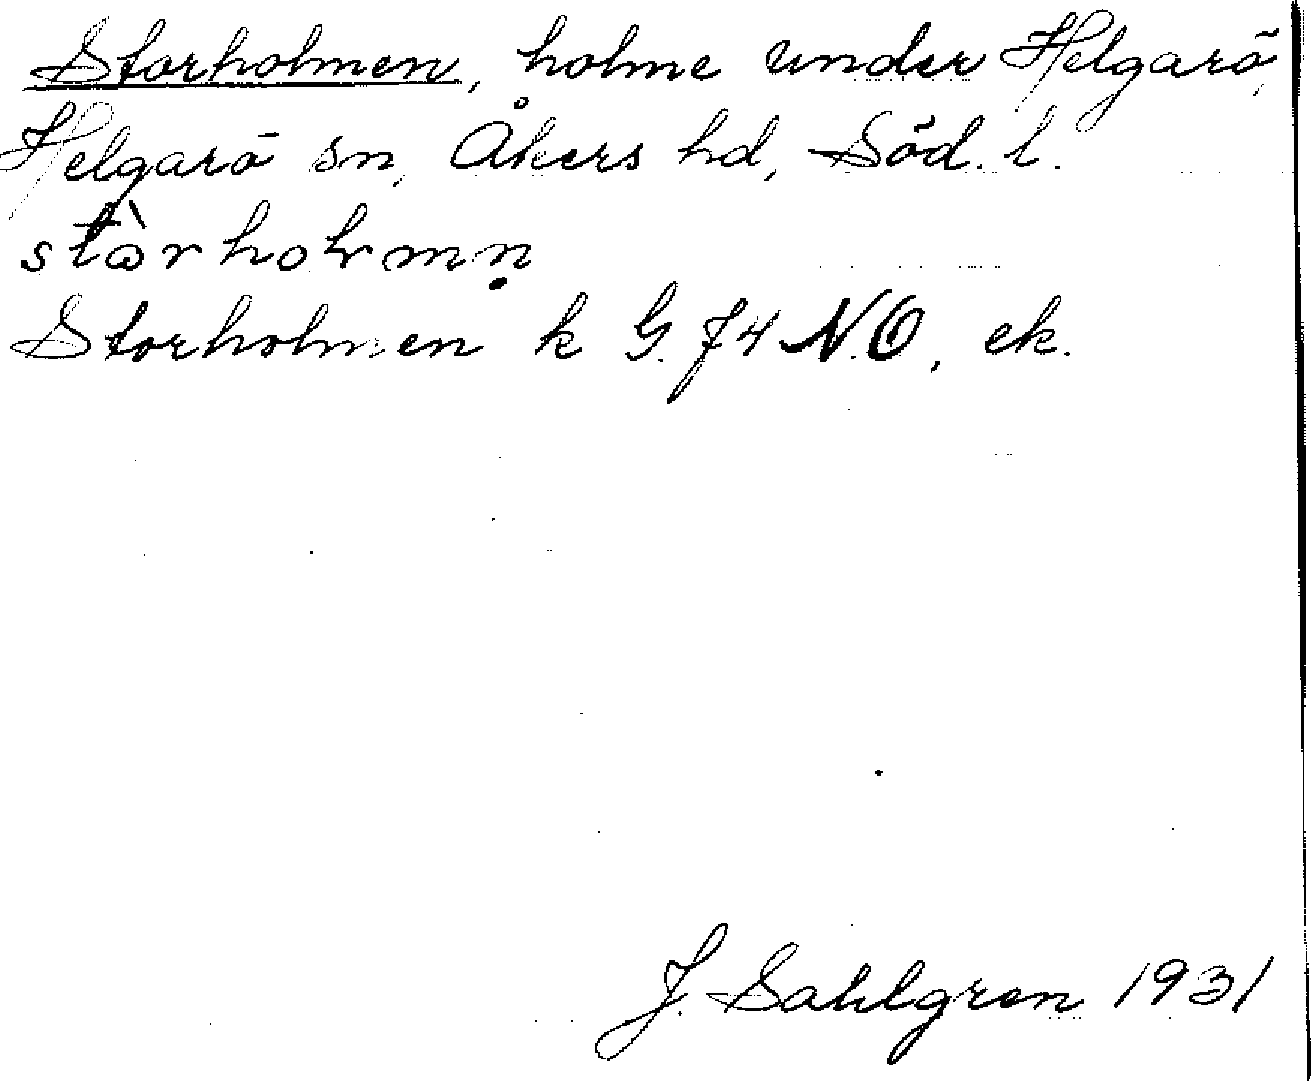 Storholmen, holme under Helgarö,
Helgarö sn, Åkers hd, Söd. l.
stòrholmn̥
Storholmen k G. J4 N.O, ek.
J. Sahlgren 1931